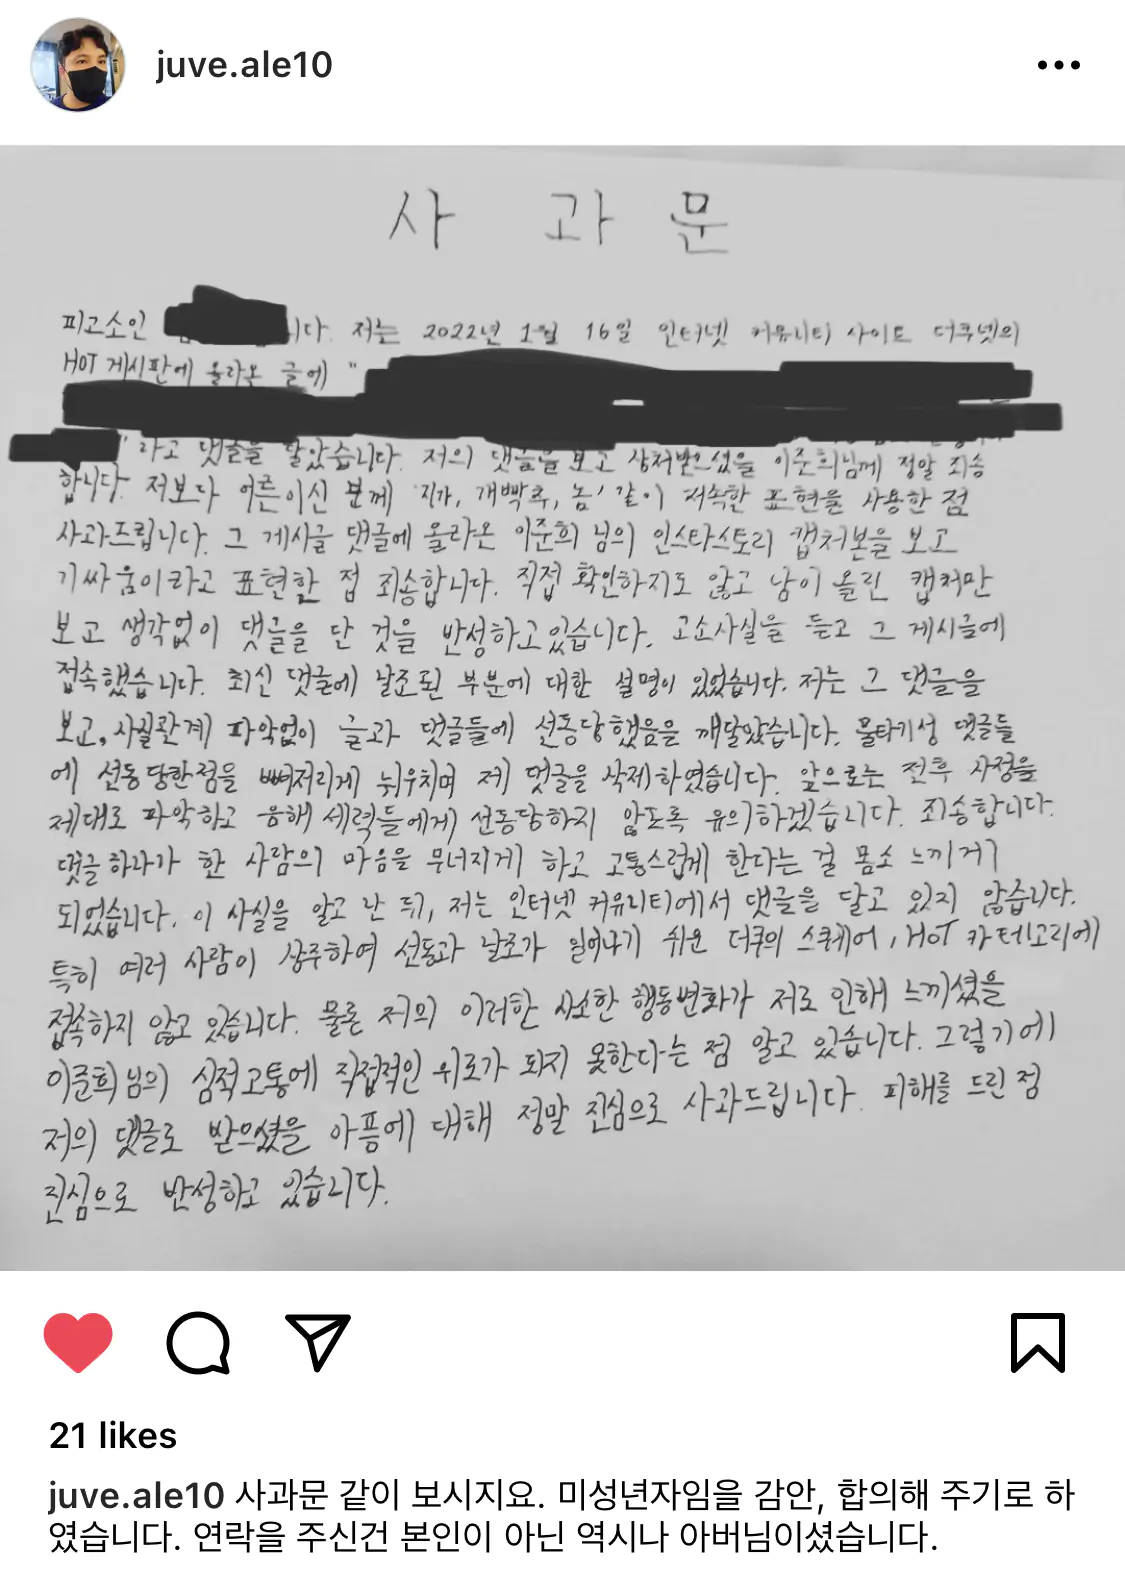 juve.ale10
사 과 문
피고소인 니다. 저는 2022년 1월 16일 인터넷 커뮤니티 사이트 더쿠넷의
HOT 게시판에 올라온 글에 "
"라고 댓글을 달았습니다. 저의 댓글을 보고 상처받으셨을 이준희님께 정말 죄송
합니다. 저보다 어른이신 분께 '지가, 개빡추, 놈' 같이 저속한 표현을 사용한 점
사과드립니다. 그 게시글 댓글에 올라온 이준희 님의 인스타스토리 캡처본을 보고
기싸움이라고 표현한 점 죄송합니다. 직접 확인하지도 않고 남이 올린 캡처만
보고 생각없이 댓글을 단 것을 반성하고있습니다. 고소사실을 듣고 그 게시글에
접속했습니다. 최신 댓글에 날조된 부분에 대한 설명이 있었습니다. 저는 그 댓글을
보고, 사실관계 파악없이 글과 댓글들에 선동당했음을 깨달았습니다. 물타기성 댓글들
에 선동당한점을 뼈저리게 뉘우치며 제 댓글을 삭제하였습니다. 앞으로는 전후 사정을
제대로 파악하고 음해 세력들에게 선동당하지 않도록 유의하겠습니다. 죄송합니다.
댓글 하나가 한 사람의 마음을 무너지게 하고 고통스럽게 한다는 걸 몸소 느끼게
되었습니다. 이 사실을 알고 난 뒤, 저는 인터넷 커뮤니티에서 댓글을 달고 있지 않습니다.
특히 여러 사람이 상주하여 선동과 날조가 일어나기 쉬운 더쿠의 스퀘어, HOT 카테고리에
접속하지 않고 있습니다. 물론 저의 이러한 사소한 행동변화가 저로 인해 느끼셨을
이준희님의 심적고통에 직접적인 위로가 되지 못한다는 점 알고 있습니다. 그렇기에
저의 댓글로 받으셨을 아픔에 대해 정말 진심으로 사과드립니다. 피해를 드린 점
진심으로 반성하고 있습니다.
21 likes
juve.ale10 사과문 같이 보시지요. 미성년자임을 감안, 합의해 주기로 하
였습니다. 연락을 주신건 본인이 아닌 역시나 아버님이셨습니다.